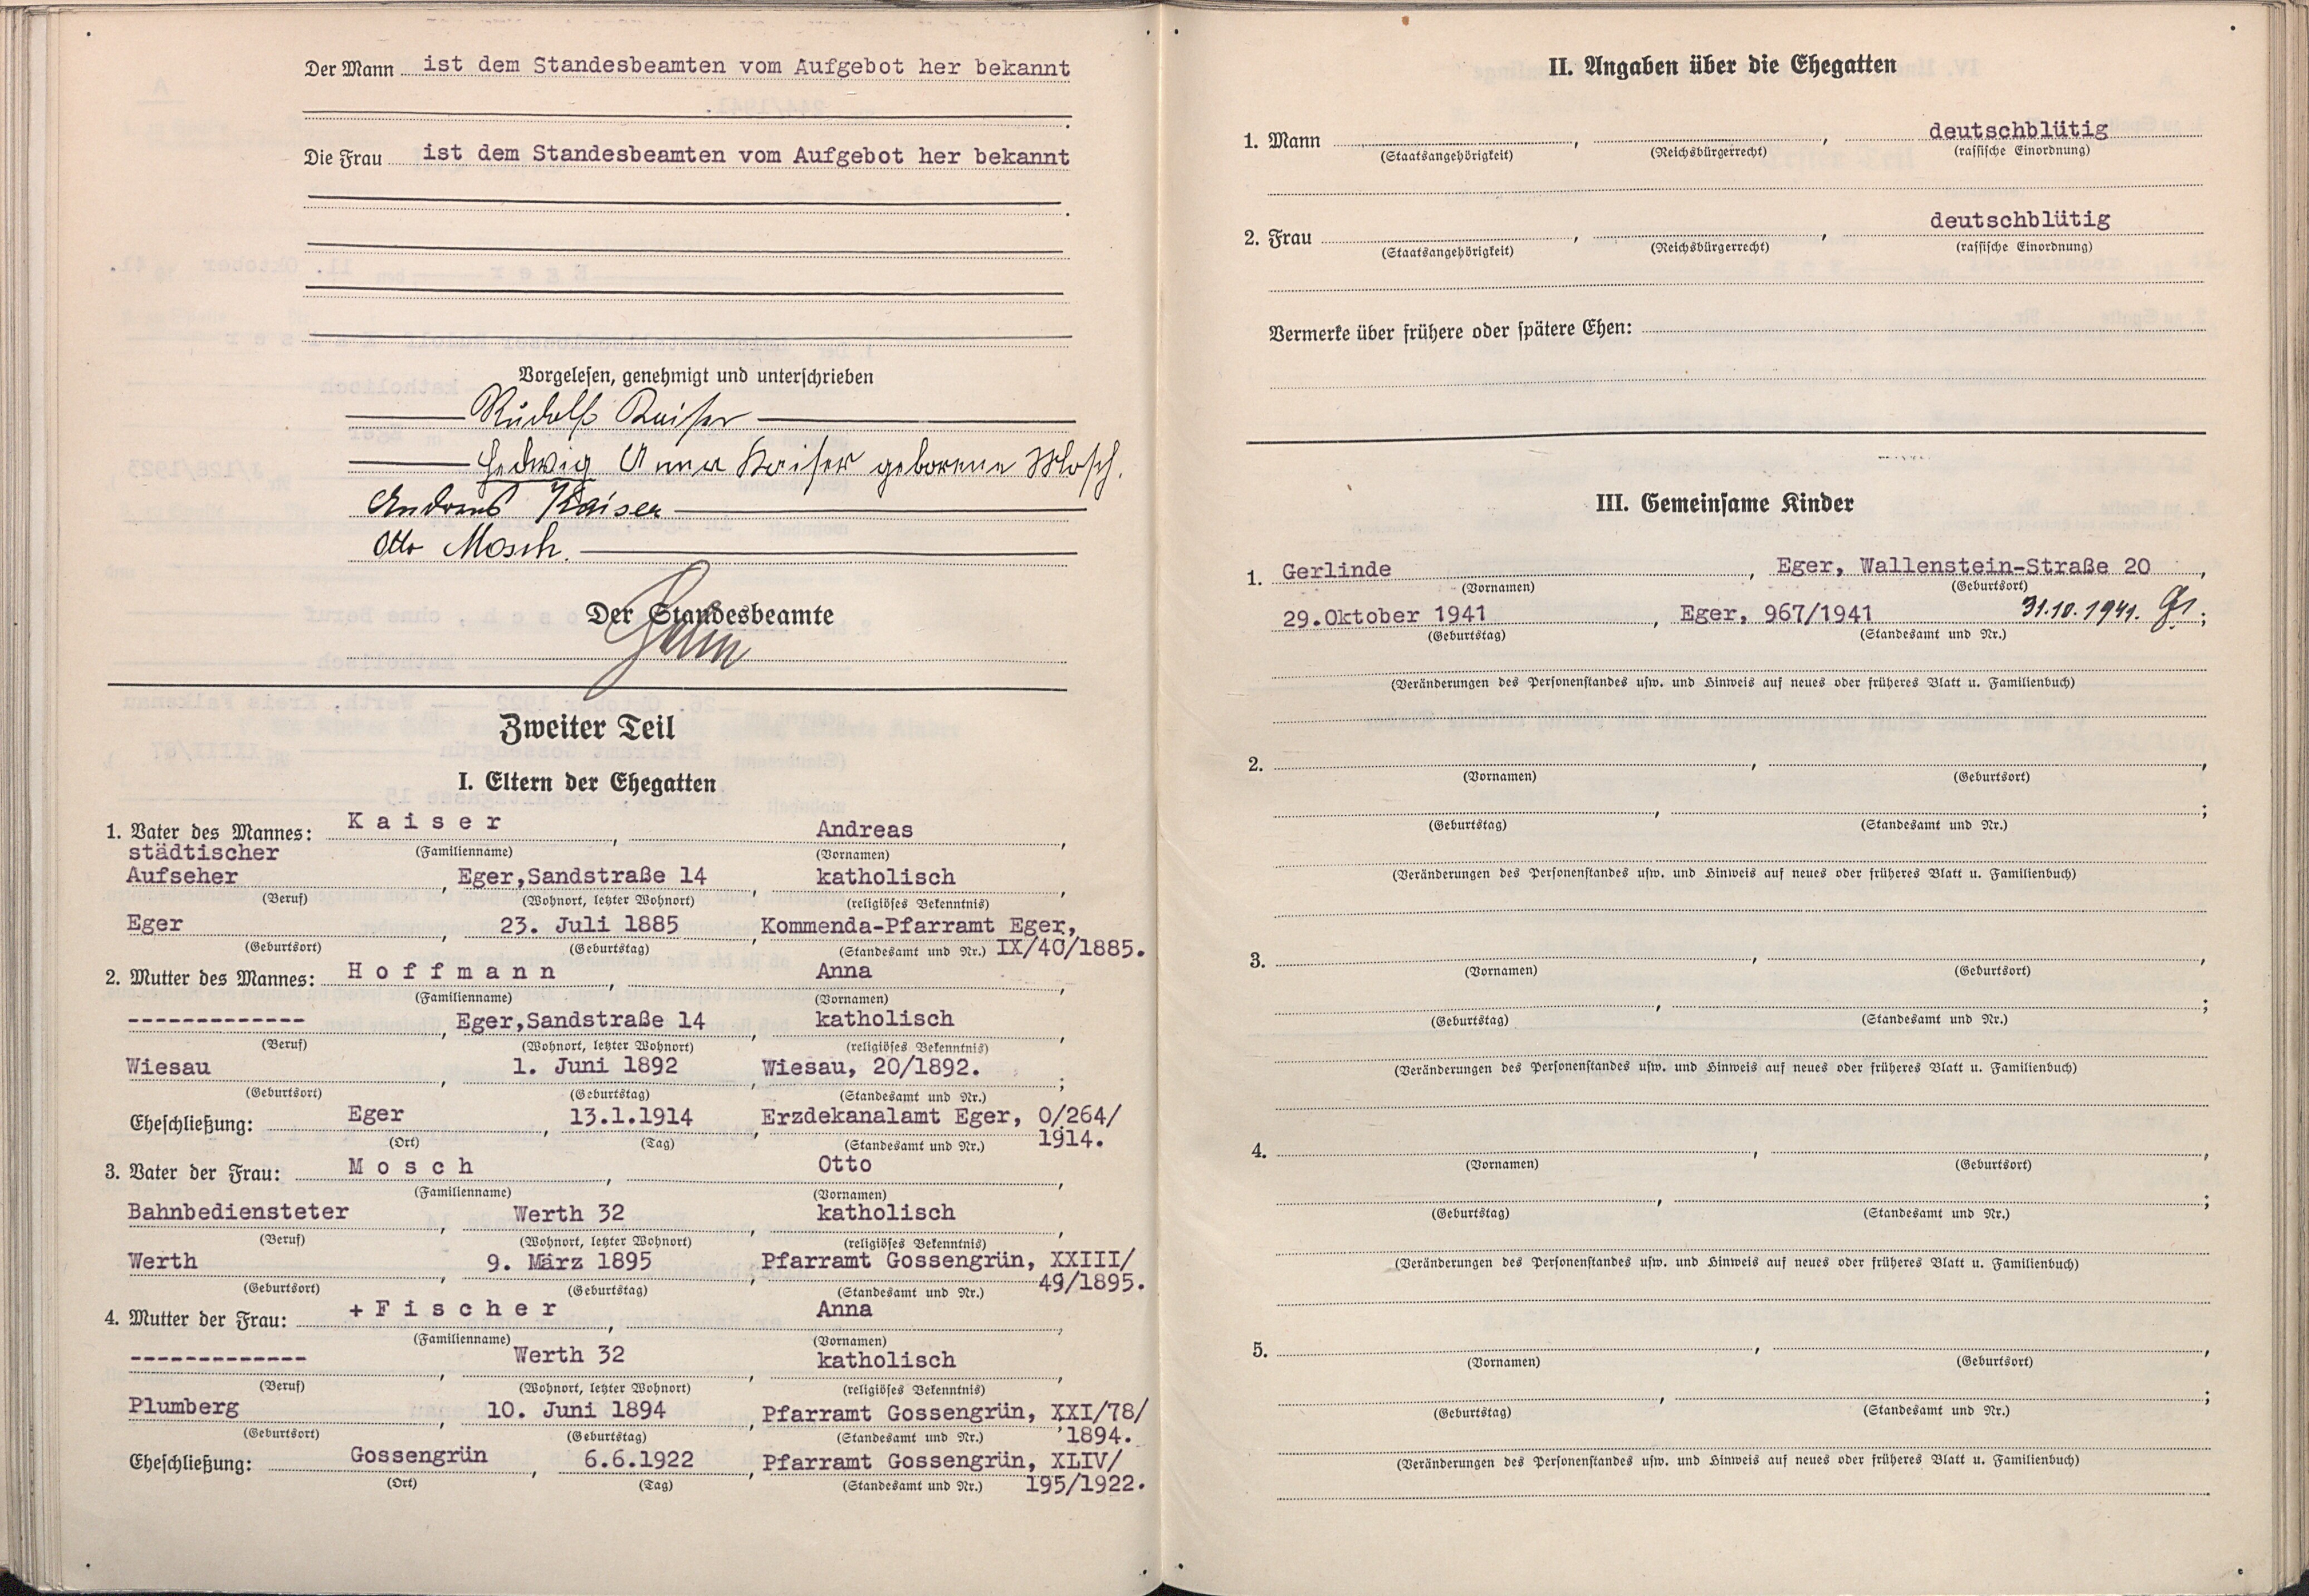 Der Mann ist dem Standesbeamten vom Aufgebot her bekannt
.
Die Frau ist dem Standesbeamten vom Aufgebot her bekannt
.
Vorgelesen, genehmigt und unterschrieben
Rudolf Kaiser
Hedwig Anna Kaiser geborene Mosch.
Andreas Kaiser
Otto Mosch.
Der Standesbeamte
Zweiter Teil
I. Eltern der Ehegatten
1. Vater des Mannes: Kaiser, Andreas,
städtischer (Familienname) (Vornamen)
Aufseher, Eger,Sandstraße 14, katholisch,
(Beruf) (Wohnort, letzter Wohnort) (religiöses Bekenntnis)
Eger, 23. Juli 1885, Kommenda-Pfarramt Eger,
(Geburtsort) (Geburtstag) (Standesamt und Nr.) IX/40/1885.
2. Mutter des Mannes: Hoffmann, Anna,
(Familienname) (Vornamen)
-------------, Eger,Sandstraße 14, katholisch,
(Beruf) (Wohnort, letzter Wohnort) (religiöses Bekenntnis)
Wiesau, 1. Juni 1892, Wiesau, 20/1892. ;
(Geburtsort) (Geburtstag) (Standesamt und Nr.)
Eheschließung: Eger, 13.1.1914, Erzdekanalamt Eger, O/264/
(Ort) (Tag) (Standesamt und Nr.) 1914.
3. Vater der Frau: Mosch, Otto,
(Familienname) (Vornamen)
Bahnbediensteter, Werth 32, katholisch,
(Beruf) (Wohnort, letzter Wohnort) (religiöses Bekenntnis)
Werth, 9. März 1895, Pfarramt Gossengrün, XXIII/
(Geburtsort) (Geburtstag) (Standesamt und Nr.) 49/1895.
4. Mutter der Frau: +Fischer, Anna,
(Familienname) (Vornamen)
-------------, Werth 32, katholisch,
(Beruf) (Wohnort, letzter Wohnort) (religiöses Bekenntnis)
Plumberg, 10. Juni 1894, Pfarramt Gossengrün, XXI/78/
(Geburtsort) (Geburtstag) (Standesamt und Nr.) 1894.
Eheschließung: Gossengrün, 6.6.1922, Pfarramt Gossengrün, XLIV/
(Ort) (Tag) (Standesamt und Nr.) 195/1922.
II. Angaben über die Ehegatten
1. Mann , , deutschblütig
(Staatsangehörigkeit) (Reichsbürgerrecht) (rassische Einordnung)
2. Frau , , deutschblütig
(Staatsangehörigkeit) (Reichsbürgerrecht) (rassische Einordnung)
Vermerke über frühere oder spätere Ehen:
III. Gemeinsame Kinder
1. Gerlinde, Eger, Wallenstein-Straße 20,
(Vornamen) (Geburtsort)
29.Oktober 1941, Eger, 967/1941 31.10.1941. ;
(Geburtstag) (Standesamt und Nr.)
(Veränderungen des Personenstandes usw. und Hinweis auf neues oder früheres Blatt u. Familienbuch)
2. , ,
(Vornamen) (Geburtsort)
, ;
(Geburtstag) (Standesamt und Nr.)
(Veränderungen des Personenstandes usw. und Hinweis auf neues oder früheres Blatt u. Familienbuch)
3. , ,
(Vornamen) (Geburtsort)
, ;
(Geburtstag) (Standesamt und Nr.)
(Veränderungen des Personenstandes usw. und Hinweis auf neues oder früheres Blatt u. Familienbuch)
4. , ,
(Vornamen) (Geburtsort)
, ;
(Geburtstag) (Standesamt und Nr.)
(Veränderungen des Personenstandes usw. und Hinweis auf neues oder früheres Blatt u. Familienbuch)
5. , ,
(Vornamen) (Geburtsort)
, ;
(Geburtstag) (Standesamt und Nr.)
(Veränderungen des Personenstandes usw. und Hinweis auf neues oder früheres Blatt u. Familienbuch)